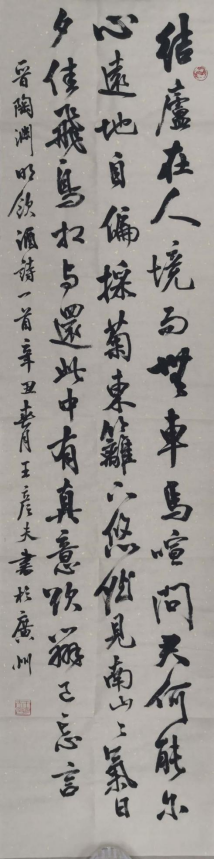 結廬在人境而無車馬喧問君何能尔
心遠地自偏採菊東籬下悠然見南山山氣日
夕佳飛鳥相与還此中有真意欲辯已忘言
晉陶淵明飲酒詩一首辛丑春月王彦夫書於廣州